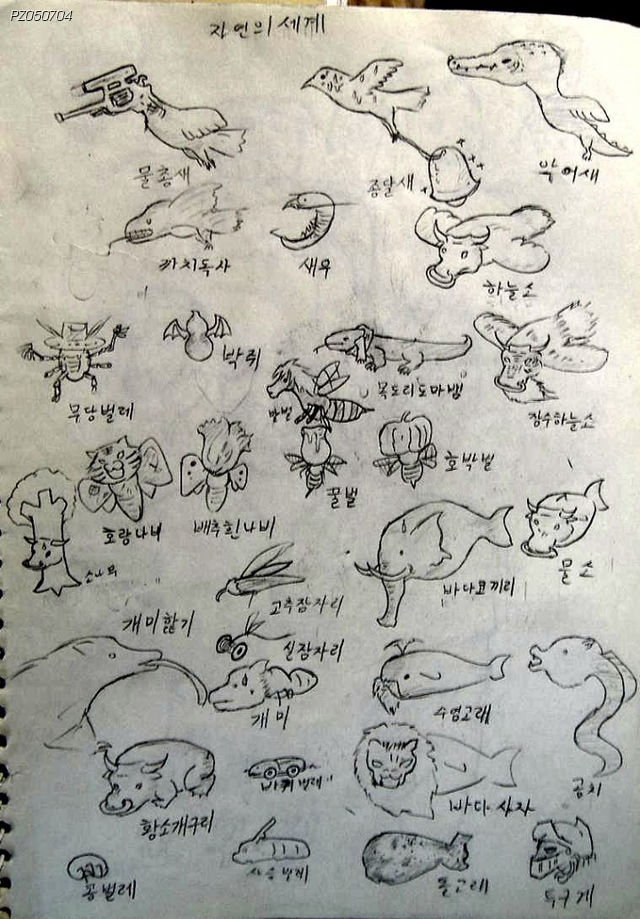 PZ050704
자연의 세계
물총새
종달새
악어새
까치독사
새우
하늘소
무당벌레
박쥐
목도리도마뱀
장수하늘소
말벌
호랑나비
배추흰나비
꿀벌
호박벌
소나무
고추잠자리
바다코끼리
물소
개미핥기
실잠자리
개미
수염고래
곰치
황소개구리
바퀴벌레
바다사자
콩벌레
사슴벌레
돌고래
투구게